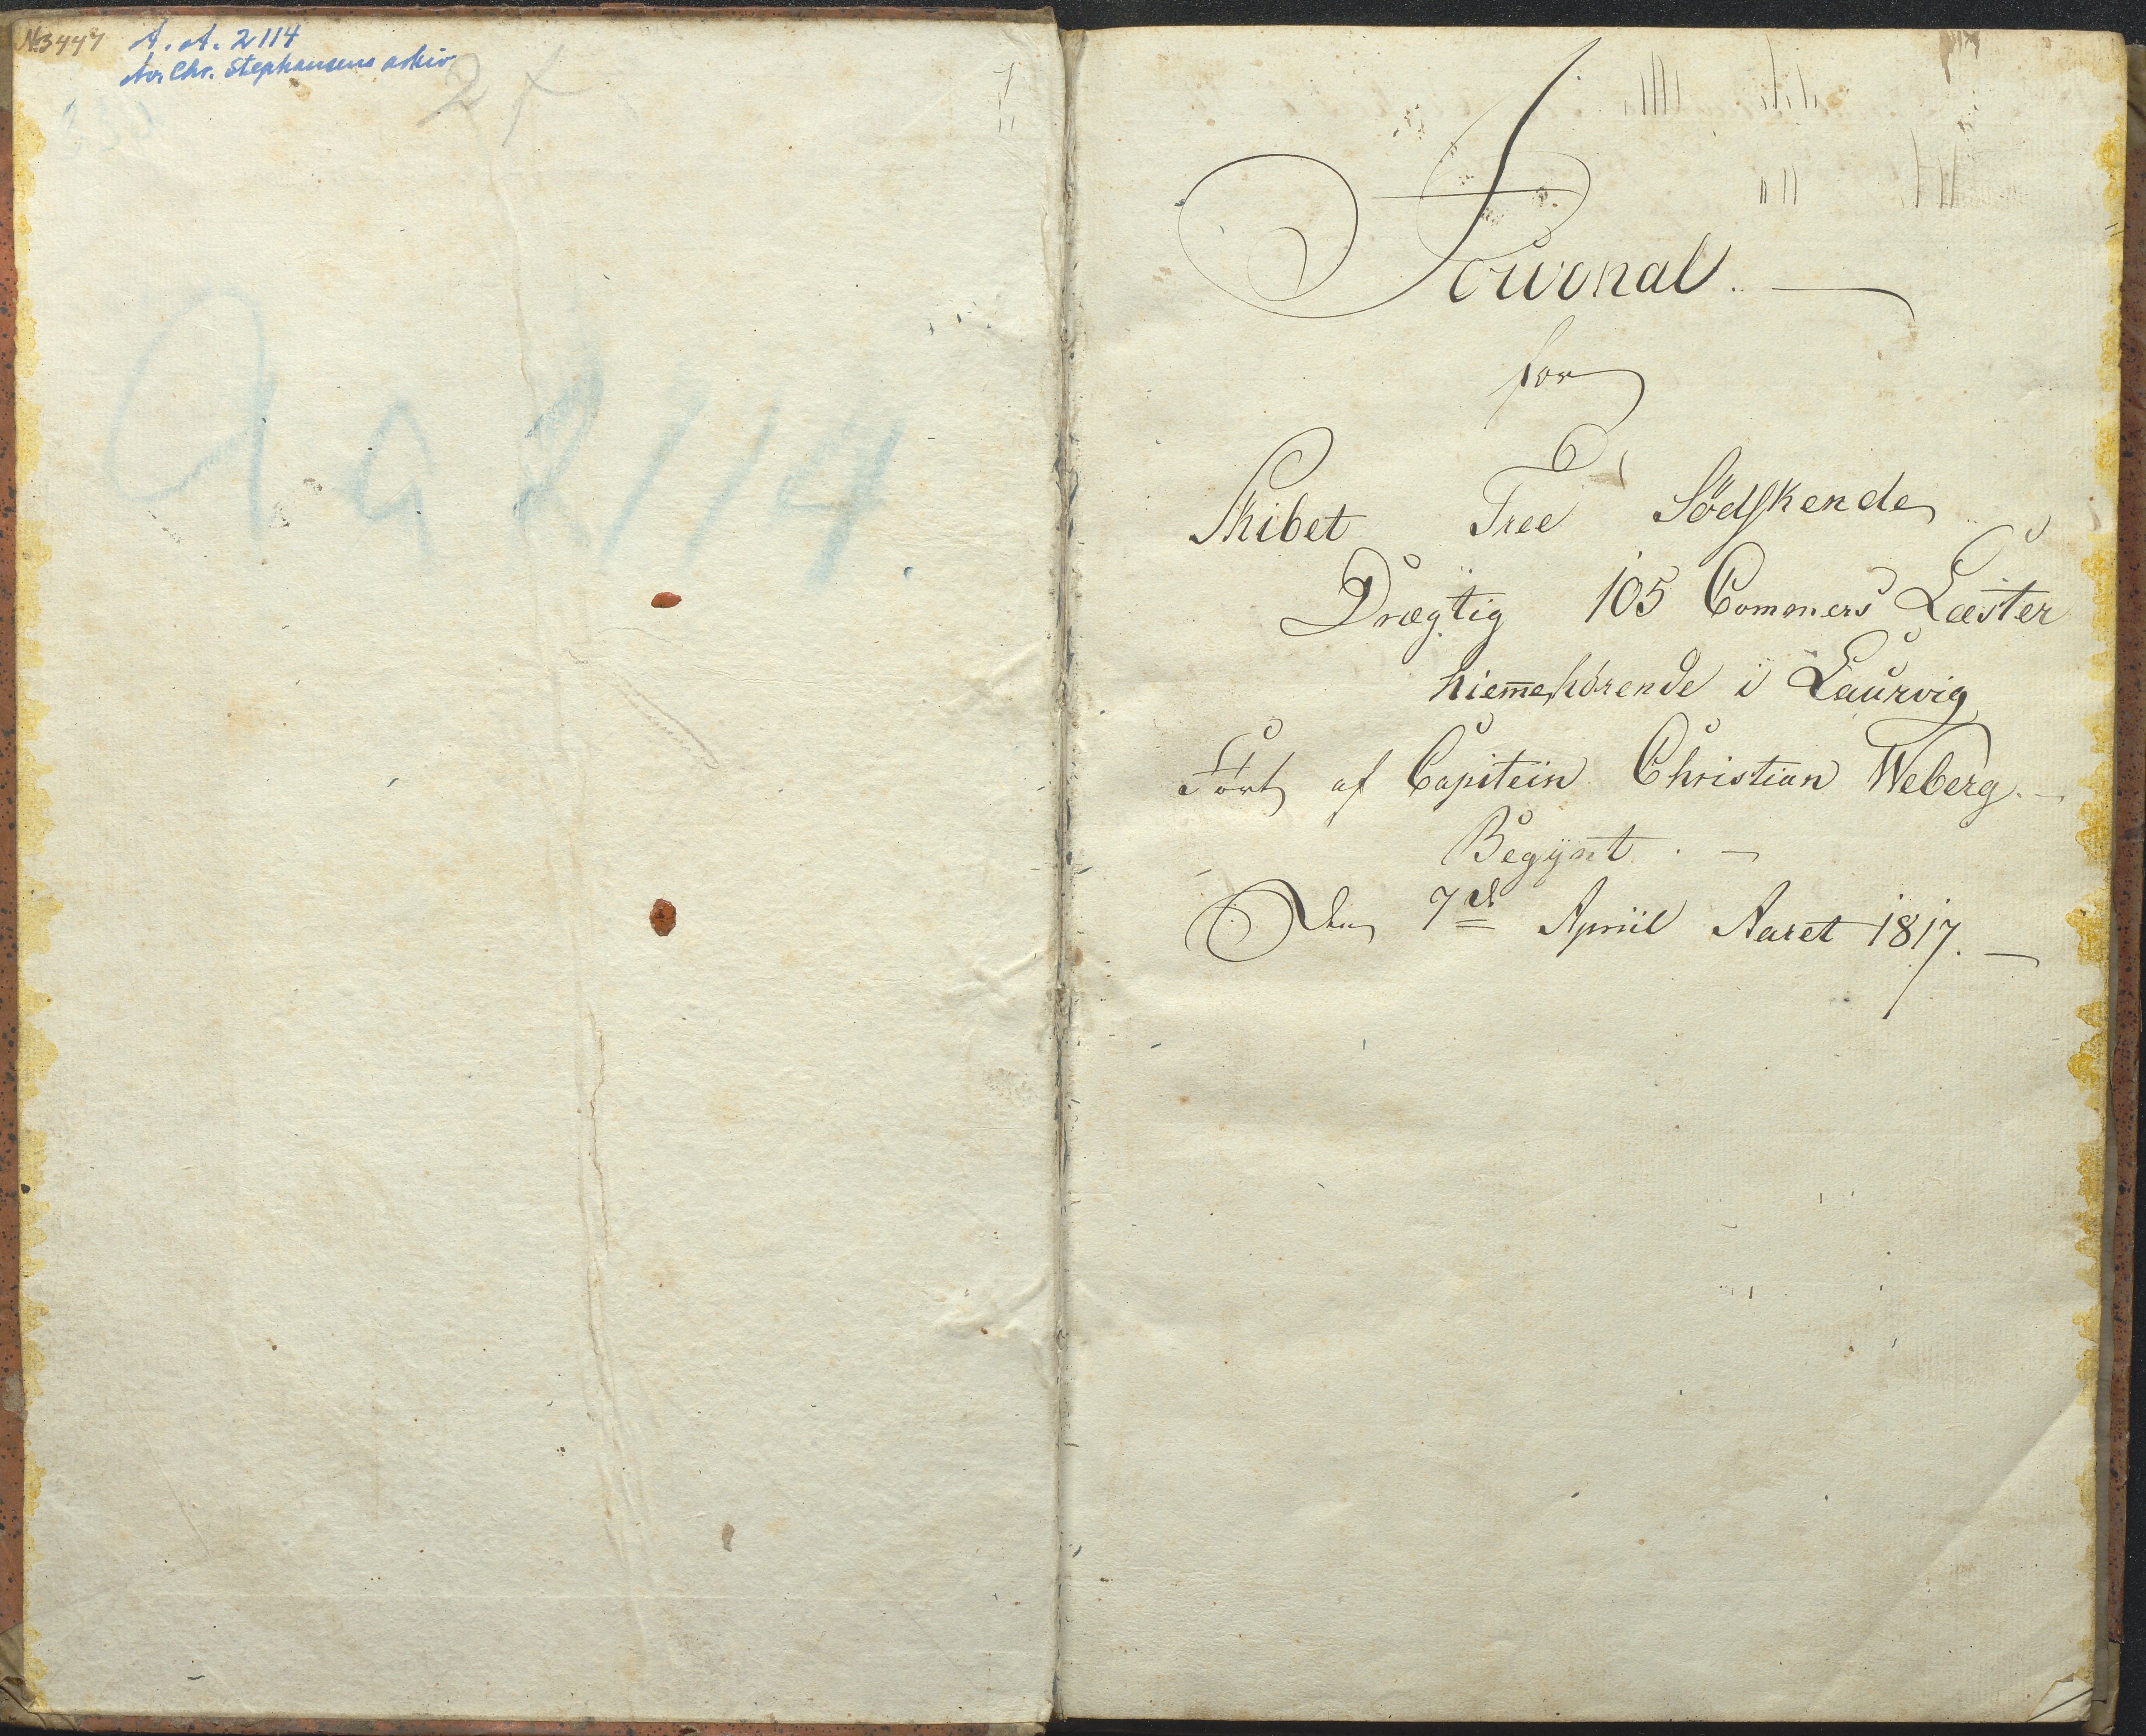 No 3447
A. A. 2114
Av. Chr. Stephansens arkiv
2
Aa 2114.
Journal.
for
Skibet Tree Södskende
Drægtig 105 Commers Læster
hiem̅ehörende i Laurvig
Fört af Capitein Christian Weberg.
Begÿnt.
Den 7de Apriil Aaret 1817.